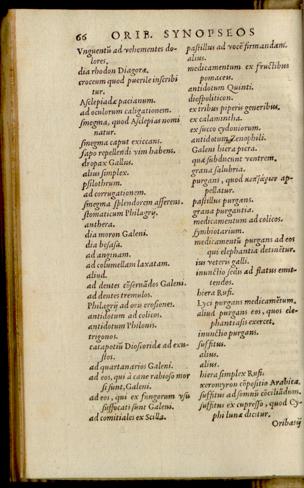 66 ORIB. SYNOPSEOS
Vnguentũ ad vehementes do-
lores.
dia rhodon Diagoræ.
croceum quod puerile inscribi
tur.
Asclepiadæ pacianum.
ad oculorum caligationem.
smegma, quod Asclepias nomi
natur.
smegma caput exiccans.
sapo repellendi vim habens.
dropax Gallus.
alius simplex.
psilothrum.
ad corrugationem.
smegma splendorem afferens.
stomaticum Philagrij.
anthera.
dia moron Galeni.
dia besasa.
ad anginam.
ad columellam laxatam.
aliud.
ad dentes cõseruãdos Galeni.
ad dentes tremulos.
Philagrij ad oris erosiones.
antidotum ad colicos.
antidotum Philonis.
trigonos.
catapotiũ Dioscoridæ ad ex-
ustos.
ad quartanarios Galeni.
ad eos, qui à cane rabioso mor
si sunt, Galeni.
ad eos, qui ex fungorum vsu
suffocati sunt Galeni.
ad comitiales ex Scilla.
pastillus ad vocẽ firmandam.
alius.
medicamentum ex fructibus
pomaceis.
antidotum Quinti.
diospoliticon.
ex tribus piperis generibus.
ex calamintha.
ex succo cydoniorum.
antidotum Zenophili.
Galeni hiera picra.
quæ subducunt ventrem.
grana salubria.
purgans, quod ap-
pellatur.
pastillus purgans.
grana purgantia.
medicamentum ad colicos.
symbiotarium.
medicamentũ purgans ad eos
qui elephantia detinẽtur.
ius veteris galli.
inunctio sedis ad flatus emit-
tendos.
hiera Rufi.
Lyci purgans medicamẽtum.
aliud purgans eos, quos ele-
phantiasis exercet.
inunctio purgans.
suffitus.
alius.
alius.
hiera simplex Rufi.
xeromyron cõpositio Arabica.
suffitus ad somnũ cõciliãdum.
suffitus ex cupresso, quod Cy-
phi lunæ dicitur.
Oribasij